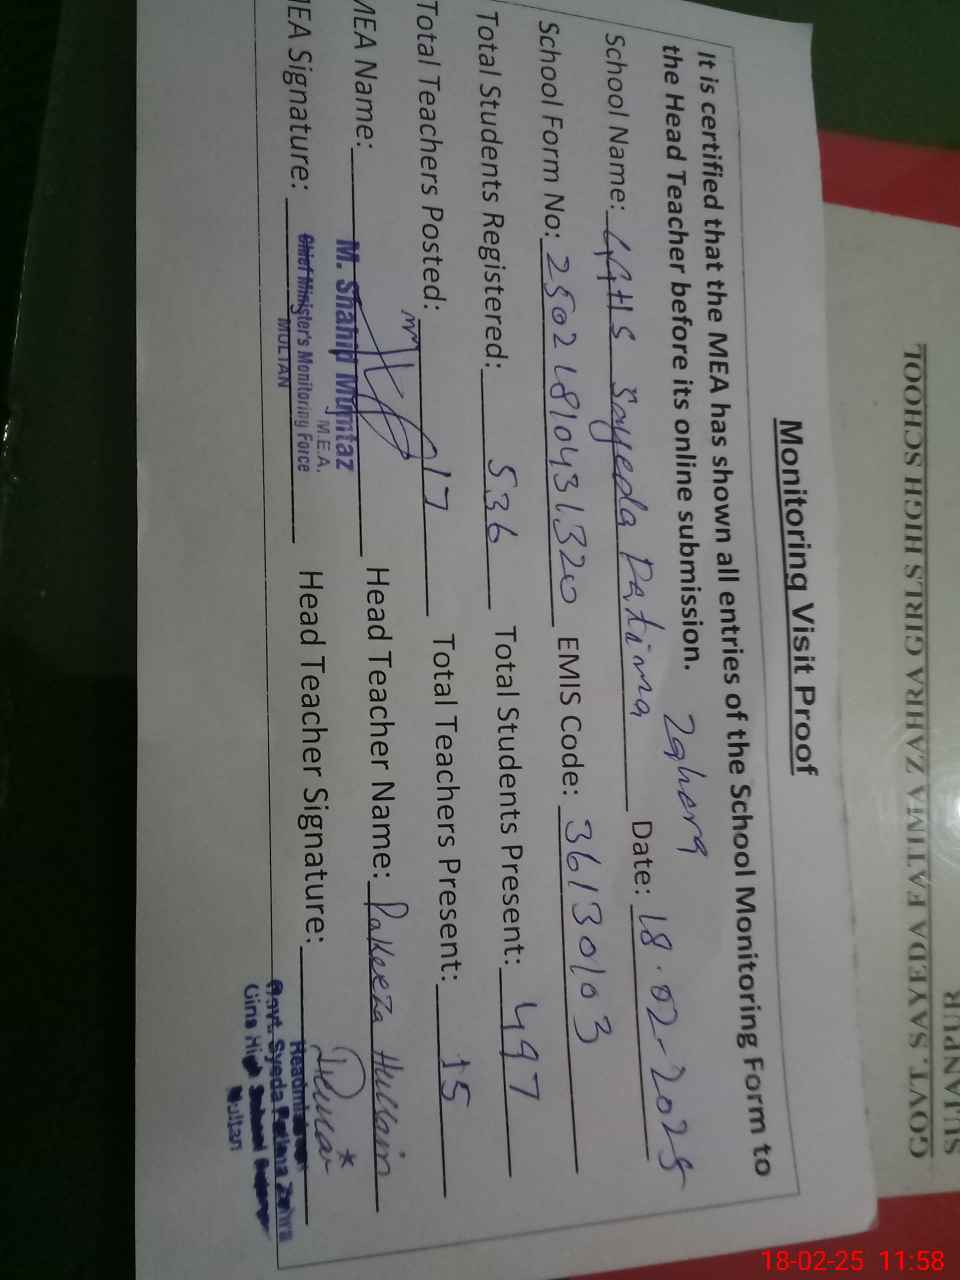 Monitoring Visit Proof
It is certified that the MEA has shown all entries of the School Monitoring Form to
the Head Teacher before its online submission.
School Name: GGHS Sayeda Fatima Zahera Date: 18.02-2025
School Form No: 25021810431320 EMIS Code: 36130103
Total Students Registered: 536 Total Students Present: 497
Total Teachers Posted: 17 Total Teachers Present: 15
MEA Name: Head Teacher Name: Pakeeza Hussain
M. Shahid Mumtaz
M.E.A.
Chief Minister's Monitoring Force
MULTAN
MEA Signature: Head Teacher Signature:
Headmistress
Govt. Syeda Fatima Zahra
Girls High School
Multan
GOVT. SAYEDA FATIMA ZAHRA GIRLS HIGH SCHOOL
SUJANPUR
18-02-25 11:58